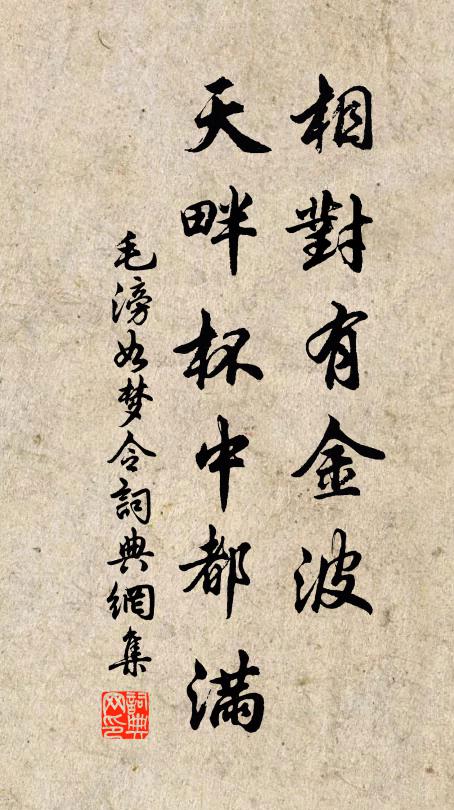 相對有金波
天畔杯中都滿
毛滂如梦令詞典網集
詞典网印